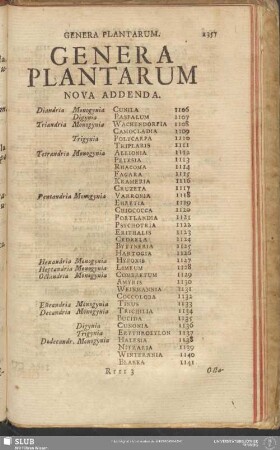 GENERA PLANTARUM. 1357
GENERA
PLANTARUM
NOVA ADDENDA.
Diandria Monogynia CUNILA 1106
Digynia PASPALUM 1107
Triandria Monogynia WACHENDORFIA 1108
1109
Trigynia POLYCARPA 1110
TRIPLARIS 1111
Tetrandria Monogynia 1112
PETESIA 1113
RHACOMA 1114
FAGARA 1115
KRAMERIA 1116
CRUZETA 1117
Pentandria Monogynia VARRONIA 1118
EHRETIA 1119
CHIOCOCCA 1120
PORTLANDIA 1121
PSYCHOTRIA 1122
ERITHALIS 1123
CEDRELA 1124
BYTTNERIA 1125
HARTOGIA 1126
Hexandria Monogynia 1127
Heptandria Monogynia LIMEUM 1128
Octandria Monogynia COMBRETUM 1129
AMYRIS 1130
WEINMANNIA 1131
COCCOLOBA 1132
Enneandria Monogynia TINUS 1133
Decandria Monogynia TRICHILIA 1134
BUCIDA 1135
Digynia CUNONIA 1136
Trigynia ERYTHROXYLON 1137
Dodecandr. Monogynia HALESIA 1138
NITRARIA 1139
WINTERANIA 1140
BLAKEA 1141
Rrrr 3
SLUB